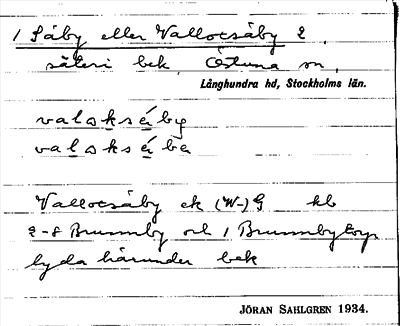 1 Såby eller Vallocsåby 2.
säteri bek, Östuna sn,
Långhundra hd, Stockholms län.
valoksåby
valoksåba
Vallocsåby ek (W-) G kb
2-8 Brunnby och 1 Brunnbytorp
lyda härunder bek
JÖRAN SAHLGREN 1934.